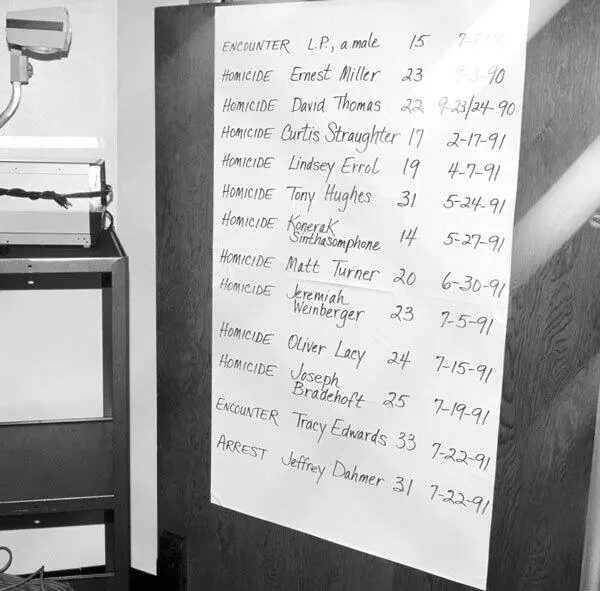 ENCOUNTER L.P., a male 15
HOMICIDE Ernest Miller 23 9-3-90
HOMICIDE David Thomas 22 9-23/24-90
HOMICIDE Curtis Straughter 17 2-17-91
HOMICIDE Lindsey Errol 19 4-7-91
HOMICIDE Tony Hughes 31 5-24-91
HOMICIDE Konerak
Sinthasomphone 14 5-27-91
HOMICIDE Matt Turner 20 6-30-91
HOMICIDE Jeremiah
Weinberger 23 7-5-91
HOMICIDE Oliver Lacy 24 7-15-91
HOMICIDE Joseph
Bradehoft 25 7-19-91
ENCOUNTER Tracy Edwards 33 7-22-91
ARREST Jeffrey Dahmer 31 7-22-91